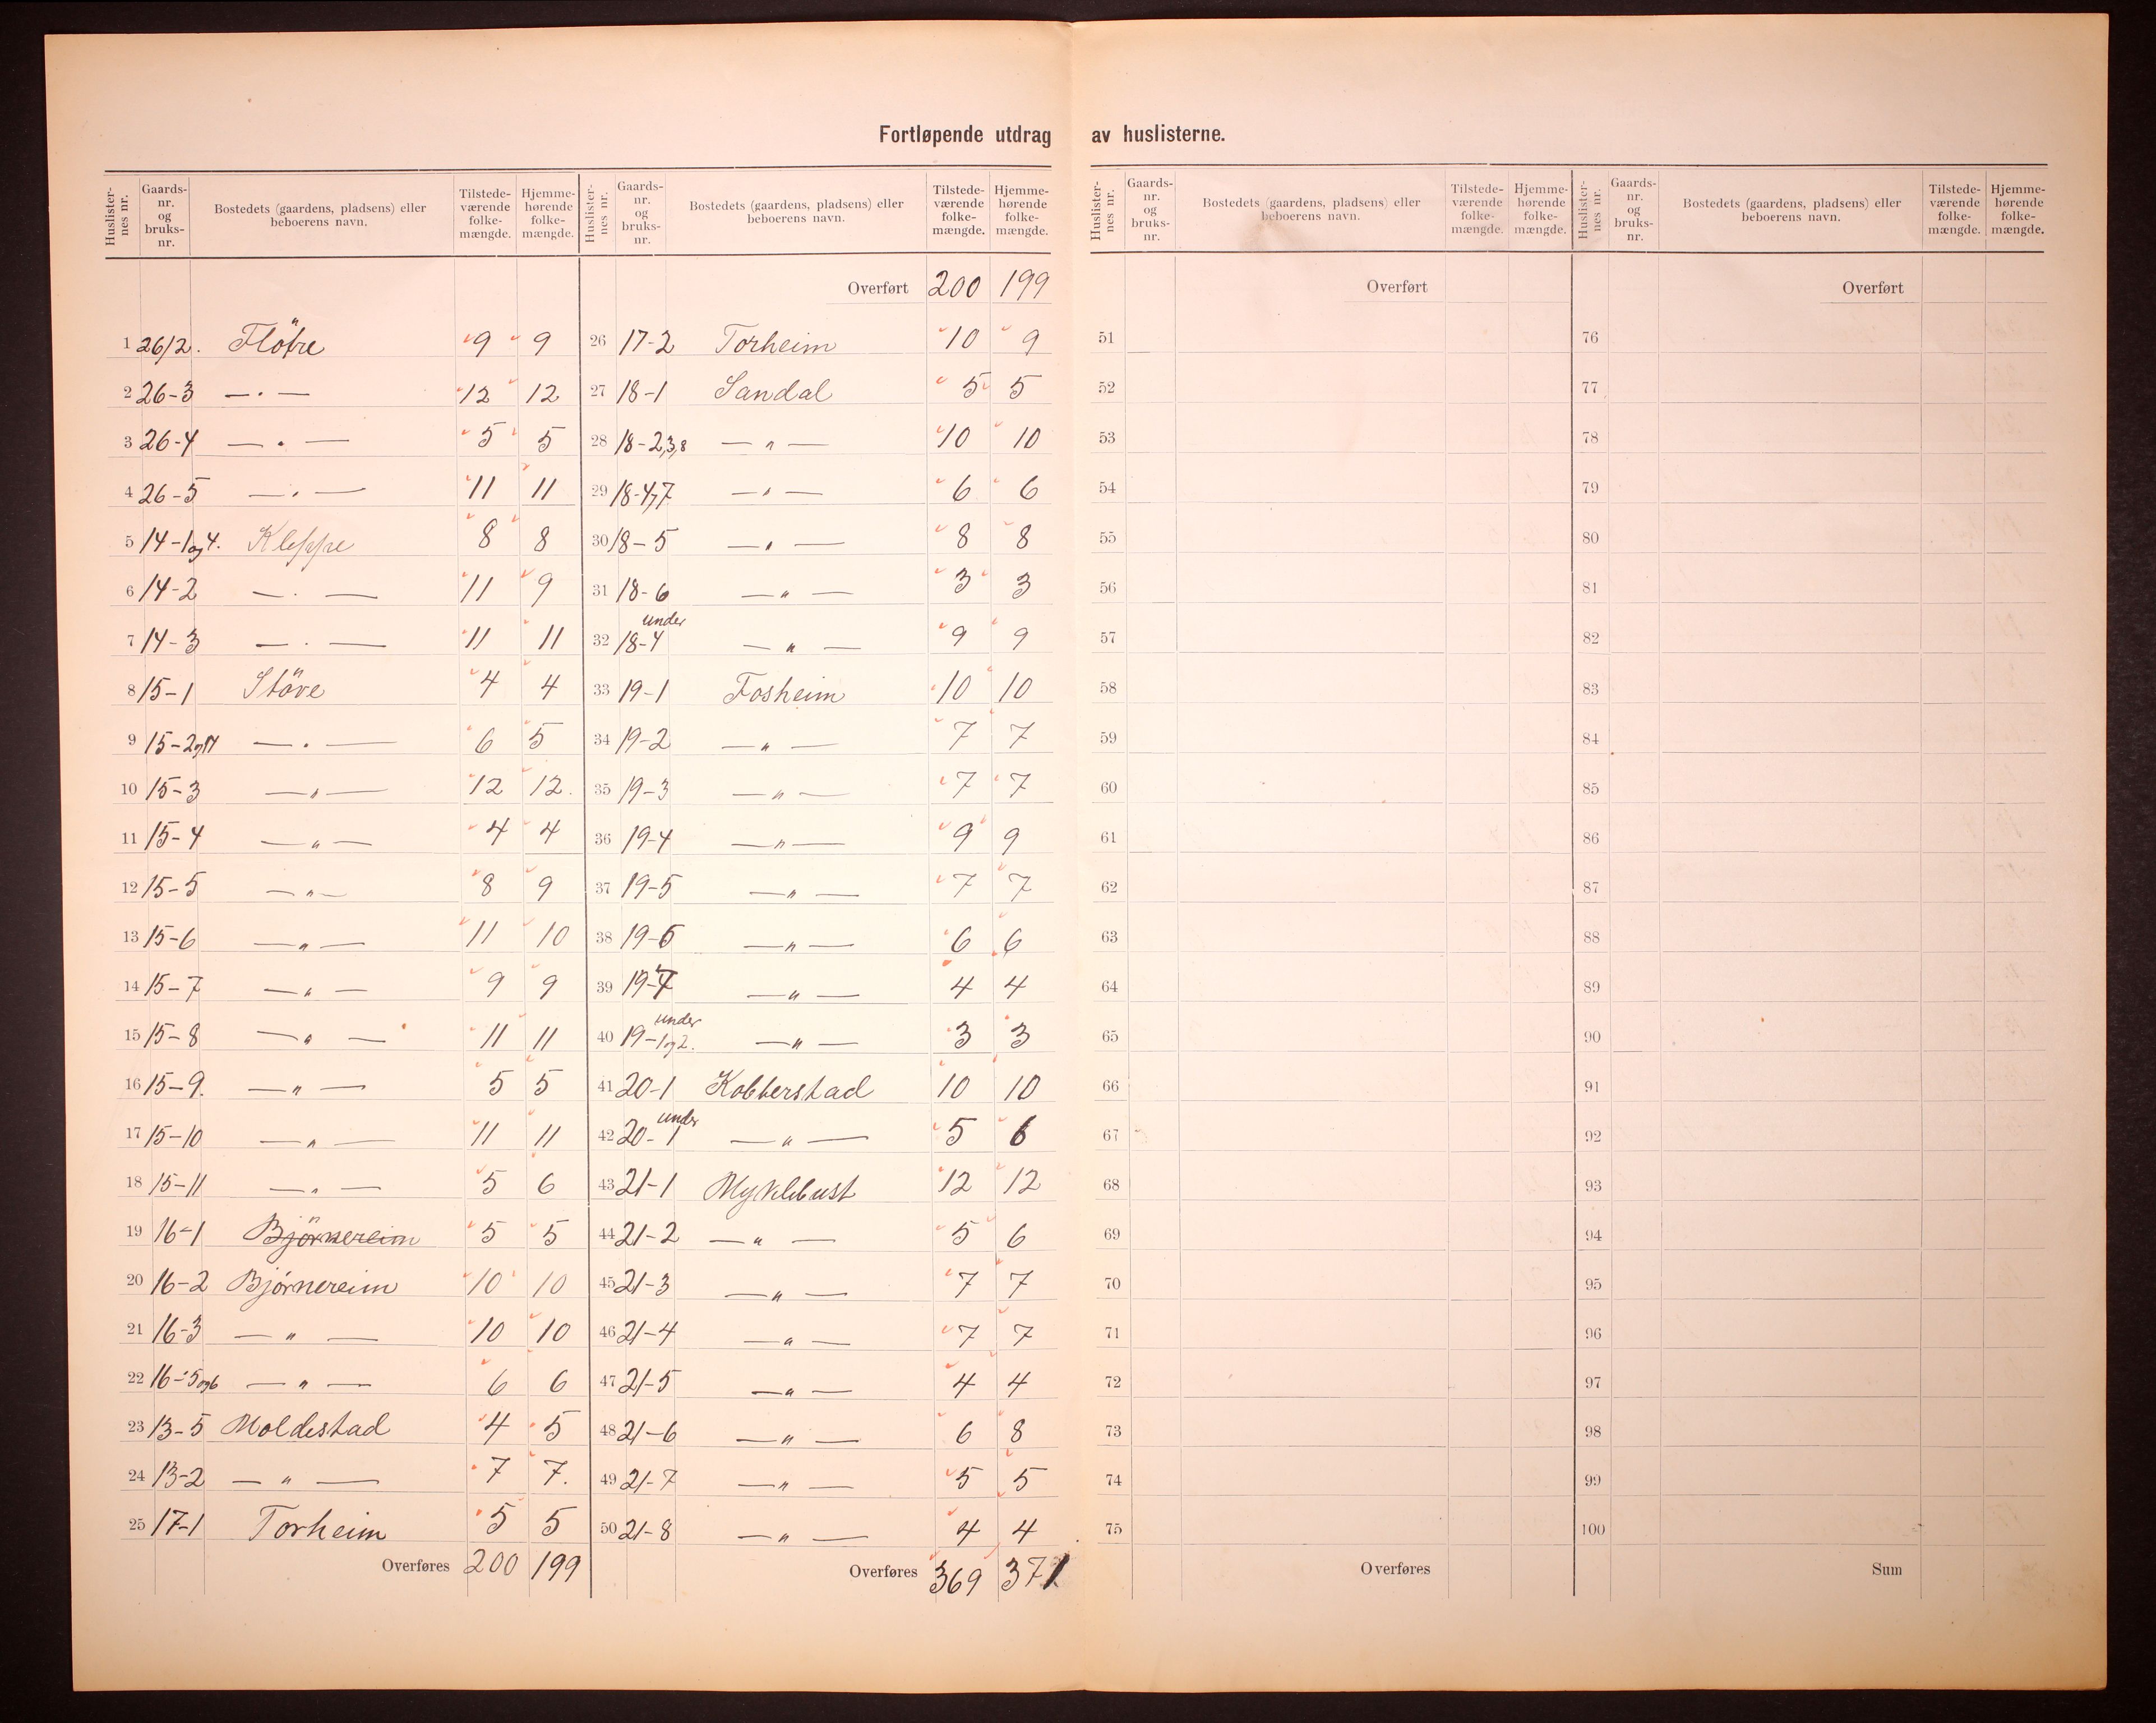 Fortløpende utdrag av huslisterne.
Huslisternes nr. Gaardsnr. og bruksnr. Bostedets (gaardens, pladsens) eller beboerens navn. Tilstedeværende folkemængde. Hjemmehørende folkemængde. Huslisternes nr. Gaardsnr. og bruksnr. Bostedets (gaardens, pladsens) eller beboerens navn. Tilstedeværende folkemængde. Hjemmehørende folkemængde.
Overført 200 199
1 26/2. Flötre 9 9
2 26-3 — . — 12 12
3 26-4 — . — 5 5
4 26-5 — . — 11 11
5 14-1og4. Kleppe 8 8
6 14-2 — . — 11 9
7 14-3 — . — 11 11
8 15-1 Störe 4 4
9 15-2og14 — . — 6 5
10 15-3 — " — 12 12.
11 15-4 — " — 4 4
12 15-5 — " — 8 9
13 15-6 — " — 11 10
14 15-7 — " — 9 9
15 15-8 — " — 11 11
16 15-9. — " — 5 5
17 15-10 — " — 11 11
18 15-11 — " — 5 6
19 16-1 Björnereim 5 5
20 16-2 Björnereim 10 10
21 16-3 — " — 10 10
22 16-5og6 — " — 6 6
23 13-5 Moldestad 4 5
24 13-2 — " — 7 7.
25 17-1 Torheim 5 5
Overføres 200 199
26 17-2 Torheim 10 9
27 18-1 Sandal 5 5
28 18-2,3,8 — " — 10 10
29 18-4,7 — " — 6 6
30 18-5 — " — 8 8
31 18-6 — " — 3 3
32 18-4 under — " — 9 9
33 19-1 Fosheim 10 10
34 19-2 — " — 7 7
35 19-3 — " — 7 7
36 19-4 — " — 9 9
37 19-5 — " — 7 7
38 19-6 — " — 6 6
39 19-7 — " — 4 4
40 19-1og2. under — " — 3 3
41 20-1 Kobberstad 10 10
42 20-1 under — " — 5 6
43 21-1 Myklebust 12 12
44 21-2 — " — 5 6
45 21-3 — " — 7 7
46 21-4 — " — 7 7
47 21-5 — " — 4 4
48 21-6 — " — 6 8
49 21-7 — " — 5 5
50 21-8 — " — 4 4
Overføres 369 371
Huslisternes nr. Gaardsnr. og bruksnr. Bostedets (gaardens, pladsens) eller beboerens navn. Tilstedeværende folkemængde. Hjemmehørende folkemængde. Huslisternes nr. Gaardsnr. og bruksnr. Bostedets (gaardens, pladsens) eller beboerens navn. Tilstedeværende folkemængde. Hjemmehørende folkemængde.
Overført Overført
51 76
52 77
53 78
54 79
55 80
56 81
57 82
58 83
59 84
60 85
61 86
62 87
63 88
64 89
65 90
66 91
67 92
68 93
69 94
70 95
71 96
72 97
73 98
74 99
75 100
Overføres Sum